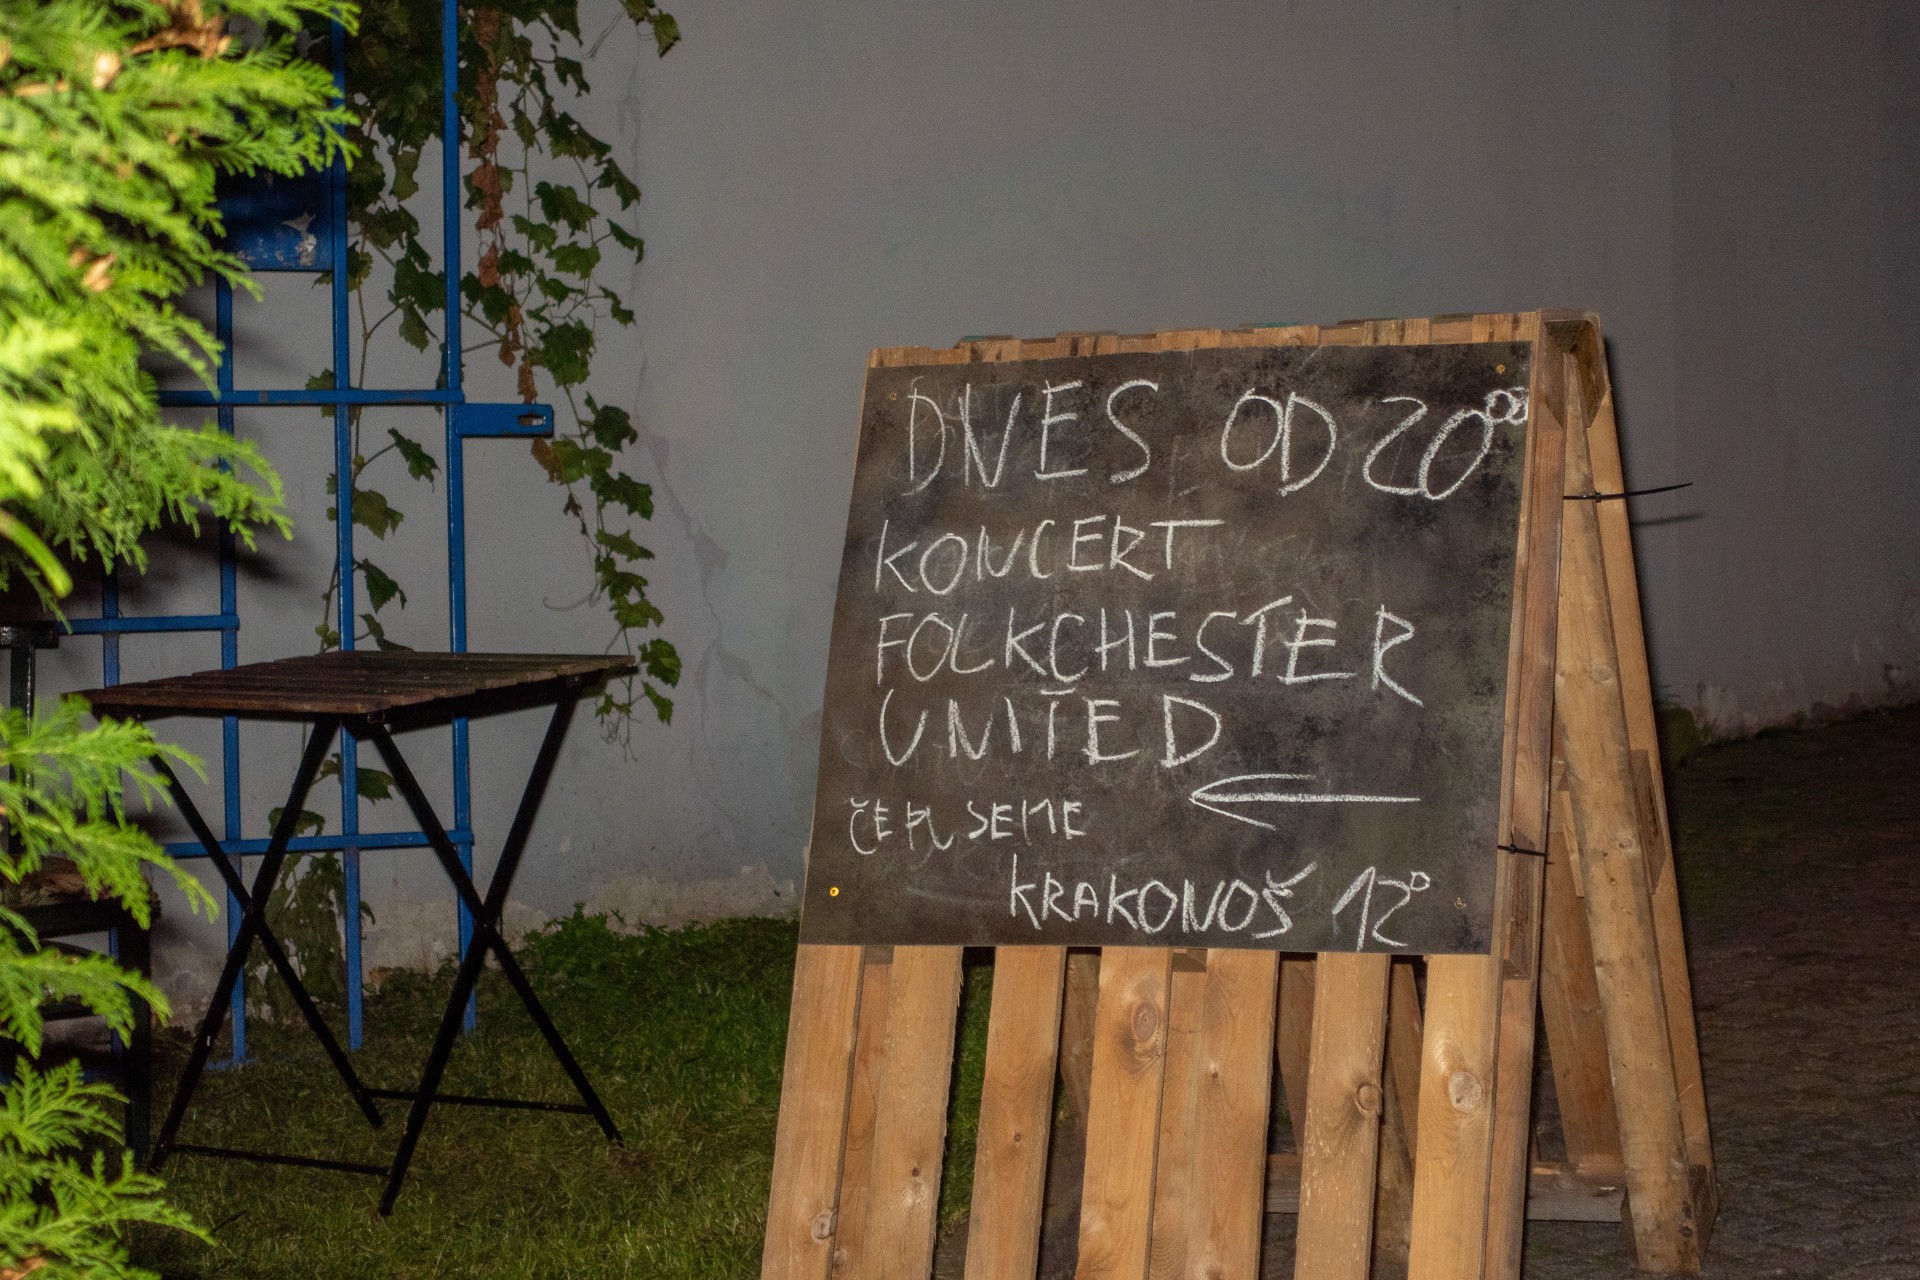 DNES OD 20⁰⁰
KONCERT
FOLKCHESTER
UNITED
ČEPUJEME
KRAKONOŠ 12°